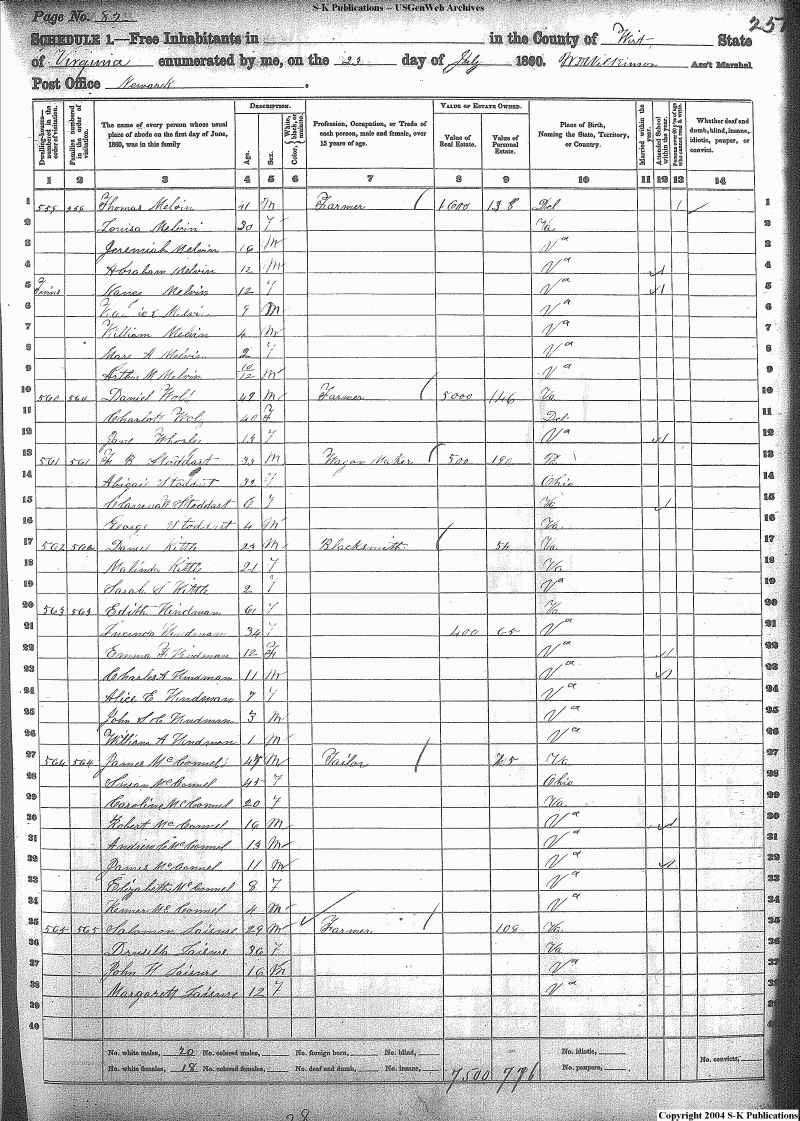 S-K Publications – USGenWeb Archives
Page No. 82
257
SCHEDULE 1.—Free Inhabitants in in the County of Wirt State
of Virginia enumerated by me, on the 23 day of July 1860. Wilkinson Ass't Marshal
Post Office Newark
Dwelling-houses numbered in the order of visitation. Families numbered in the order of visitation. The name of every person whose usual place of abode on the first day of June, 1860, was in this family DESCRIPTION. Age. Sex. Color, White, black, or mulatto. Profession, Occupation, or Trade of each person, male and female, over 15 years of age. VALUE OF ESTATE OWNED. Value of Real Estate. Value of Personal Estate. Place of Birth, Naming the State, Territory, or Country. Married within the year. Attended School within the year. Persons over 20 y'rs of age who cannot read & write. Whether deaf and dumb, blind, insane, idiotic, pauper, or convict.
1 2 3 4 5 6 7 8 9 10 11 12 13 14
1 559 559 Thomas Melvin 41 M Farmer 1600 138 Del 1 1
2 Louisa Melvin 30 F Va 2
3 Jeremiah Melvin 16 M Va 3
4 Abraham Melvin 12 M Va 1 4
5 Twins Nancy Melvin 12 F Va 1 5
6 Melvin 9 M Va 6
7 William Melvin 4 M Va 7
8 Mary A Melvin 2 F Va 8
9 Arthur M Melvin 10/12 M Va 9
10 560 560 Daniel 49 M Farmer 5000 146 Va 10
11 Charlott 40 F Del 11
12 Jane 13 F Va 1 12
13 561 561 B Stoddart 33 M Wagon Maker 500 13
14 Abigail Stoddart 32 F Ohio 14
15 Stoddart 6 F Va 1 15
16 George Stoddart 4 M Va 16
17 562 562 Daniel Kittle 23 M Blacksmith 54 Va 17
18 Malinda Kittle 21 F Va 18
19 Sarah S Kittle 2 F Va 19
20 563 563 Edith Hindman 61 F Va 20
21 Lucinda Hindman 34 F 400 65 Va 21
22 Emma Hindman 12 F Va 1 22
23 Charles A Hindman 11 M Va 1 23
24 Alice E Hindman 7 F Va 24
25 John S C Hindman 3 M Va 25
26 William A Hindman 1 M Va 26
27 564 564 James McConnel 47 M Tailor 75 Va 27
28 Susan McConnel 45 F Ohio 28
29 Caroline McConnel 20 F Va 29
30 Robert McConnel 16 M Va 1 30
31 Andrew C McConnel 13 M Va 31
32 James McConnel 11 M Va 1 32
33 Elizabeth McConnel 8 F Va 33
34 McConnel 4 M Va 34
35 565 565 Salaman Laisure 29 M Farmer 108 Va 35
36 Drusilla Laisure 36 F Va 36
37 John H Laisure 16 M Va 37
38 Margarett Laisure 12 F Va 38
39 39
40 40
No. white males, 20 No. colored males, No. foreign born, No. blind, No. idiotic, No. convict,
No. white females, 18 No. colored females, No. deaf and dumb, No. insane, 7500 776 No. paupers,
28
Copyright 2004 S-K Publications